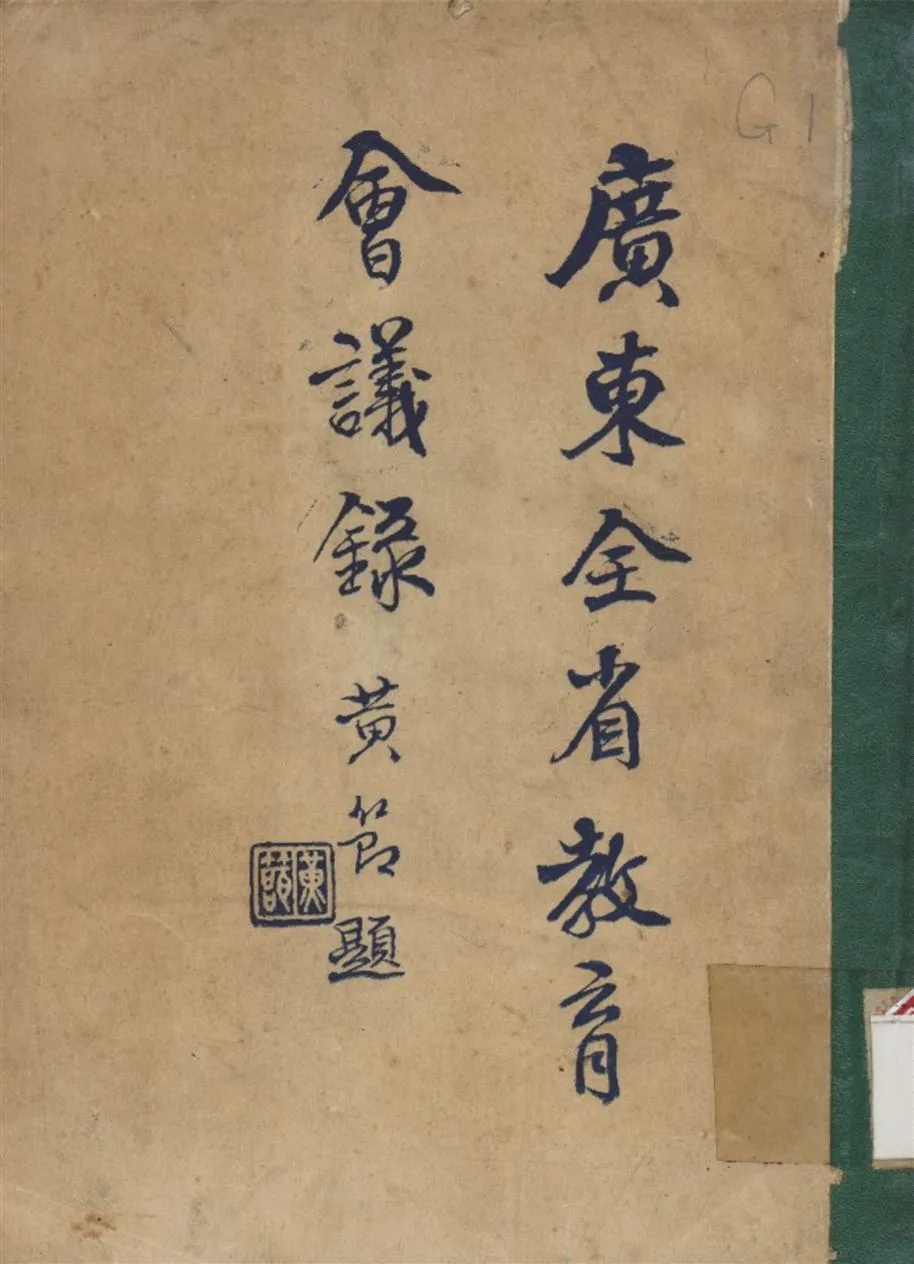 廣東全省教育
會議錄
黃節題
G1